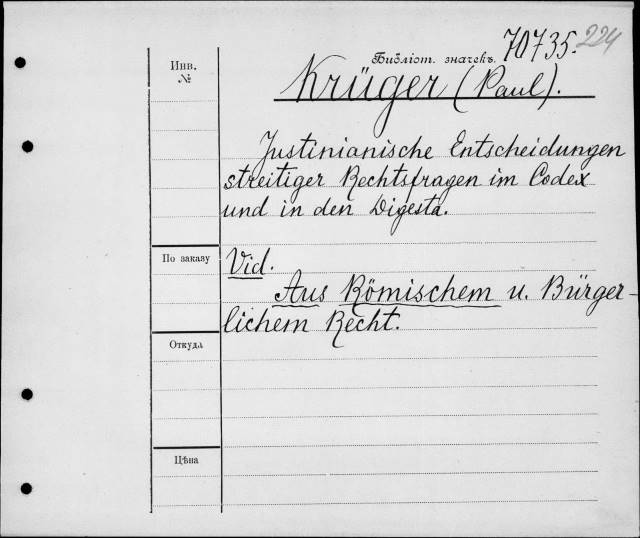 70735. 224
Библіот. значекъ.
Инв.
№
Krüger (Paul).
Justinianische Entscheidungen
streitiger Rechtsfragen im Codex
und in den Digesta.
По заказу
Vid.
Aus Römischem u. Bürger-
lichem Recht.
Откуда
Цѣна